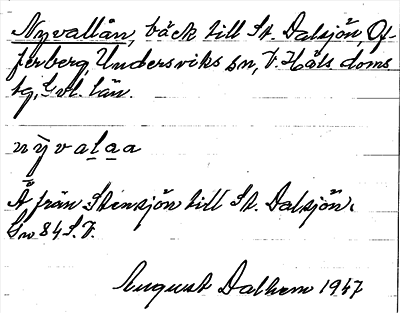 Nyvallån, bäck till St. Dalsjön, Of-
ferberg, Undersviks sn, V. Häls doms
tg, Gvl. län.
nỳvalaa
Å från Stensjön till St. Dalsjön.
Gw 84 S.V.
August Dalhem 1947